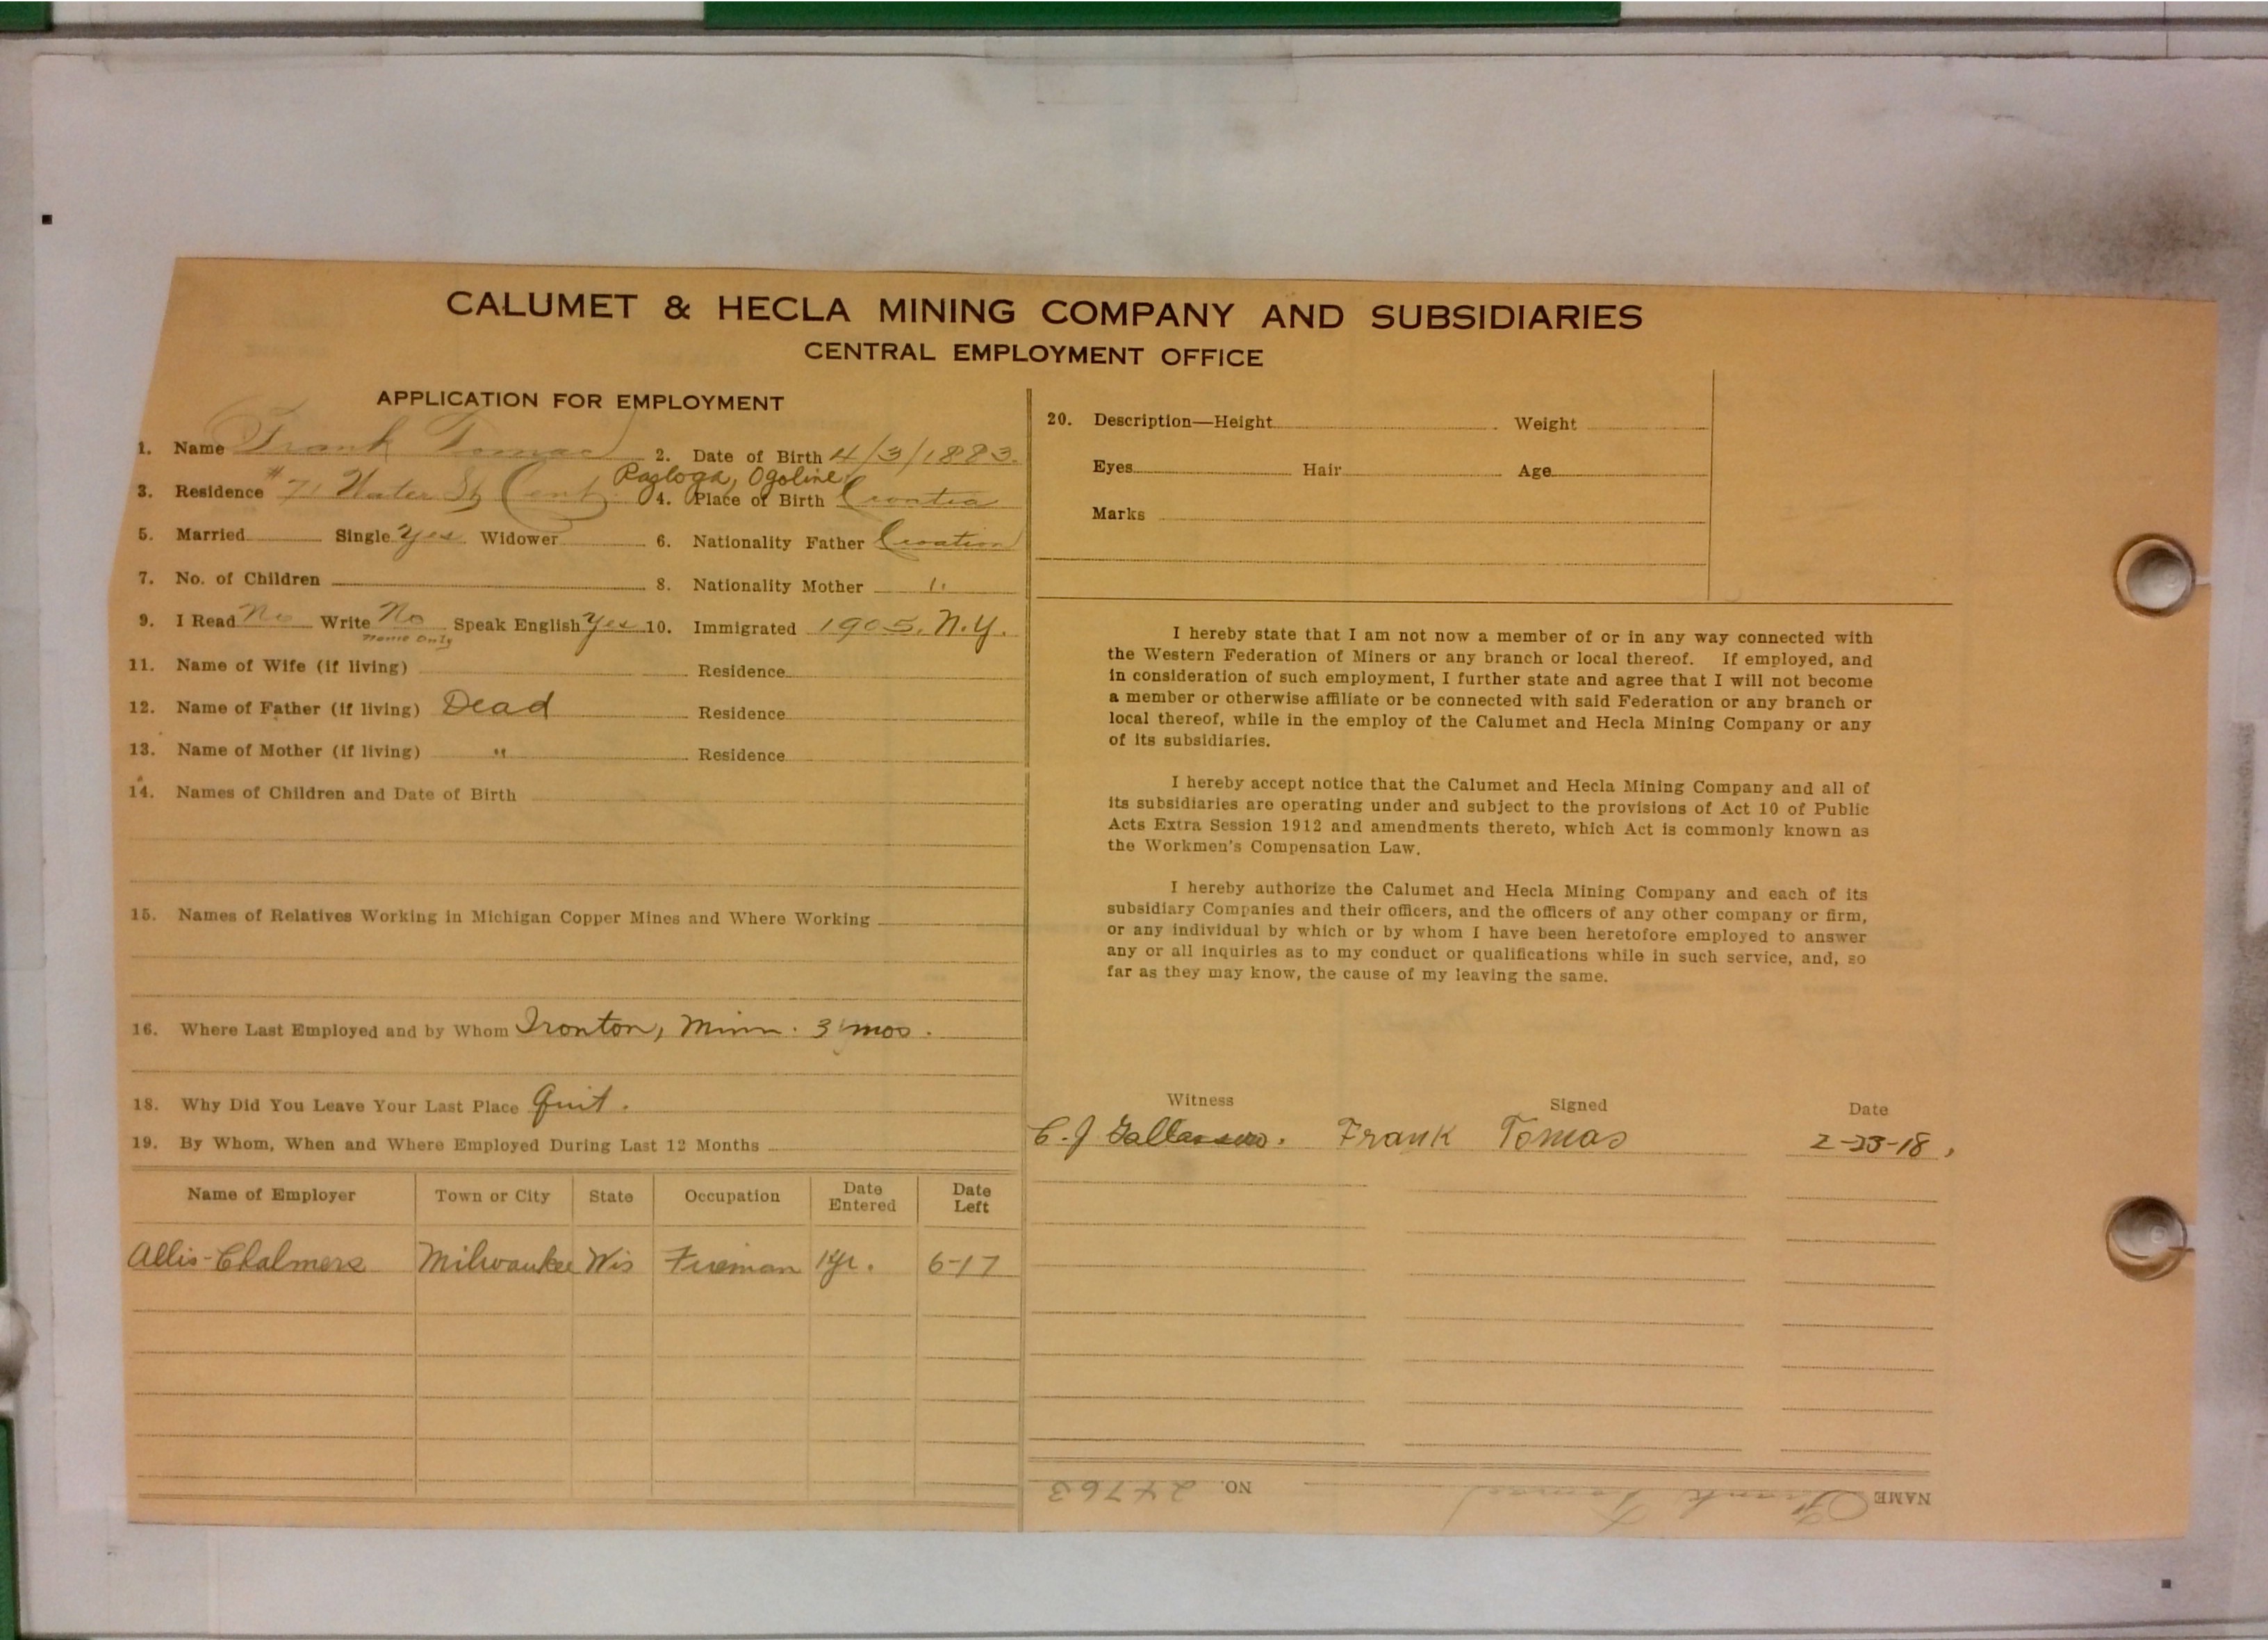 CALUMET & HECLA MINING COMPANY AND SUBSIDIARIES
CENTRAL EMPLOYMENT OFFICE
APPLICATION FOR EMPLOYMENT
1. Name Frank Tomac 2. Date of Birth 4/3/1883.
Razloga, Ogoline,
3. Residence #71 Water St Cent. 4. Place of Birth Croatia
5. Married Single Yes Widower 6. Nationality Father Croatian
7. No. of Children 8. Nationality Mother "
9. I Read No Write No Speak English Yes 10. Immigrated 1905. N.Y.
Name Only
11. Name of Wife (if living) Residence
12. Name of Father (if living) Dead Residence
13. Name of Mother (if living) " Residence
14. Names of Children and Date of Birth
15. Names of Relatives Working in Michigan Copper Mines and Where Working
16. Where Last Employed and by Whom Ironton, Minn. 3 mos.
18. Why Did You Leave Your Last Place Quit.
19. By Whom, When and Where Employed During Last 12 Months
Name of Employer Town or City State Occupation Date Entered Date Left
Allis-Chalmers Milwaukee Wis Fireman 1 yr. 6-17
20. Description—Height Weight
Eyes Hair Age
Marks
I hereby state that I am not now a member of or in any way connected with
the Western Federation of Miners or any branch or local thereof. If employed, and
in consideration of such employment, I further state and agree that I will not become
a member or otherwise affiliate or be connected with said Federation or any branch or
local thereof, while in the employ of the Calumet and Hecla Mining Company or any
of its subsidiaries.
I hereby accept notice that the Calumet and Hecla Mining Company and all of
its subsidiaries are operating under and subject to the provisions of Act 10 of Public
Acts Extra Session 1912 and amendments thereto, which Act is commonly known as
the Workmen's Compensation Law.
I hereby authorize the Calumet and Hecla Mining Company and each of its
subsidiary Companies and their officers, and the officers of any other company or firm,
or any individual by which or by whom I have been heretofore employed to answer
any or all inquiries as to my conduct or qualifications while in such service, and, so
far as they may know, the cause of my leaving the same.
Witness Signed Date
C. J. Frank Tomas 2-23-18.
NAME Frank Tomac NO. 24763